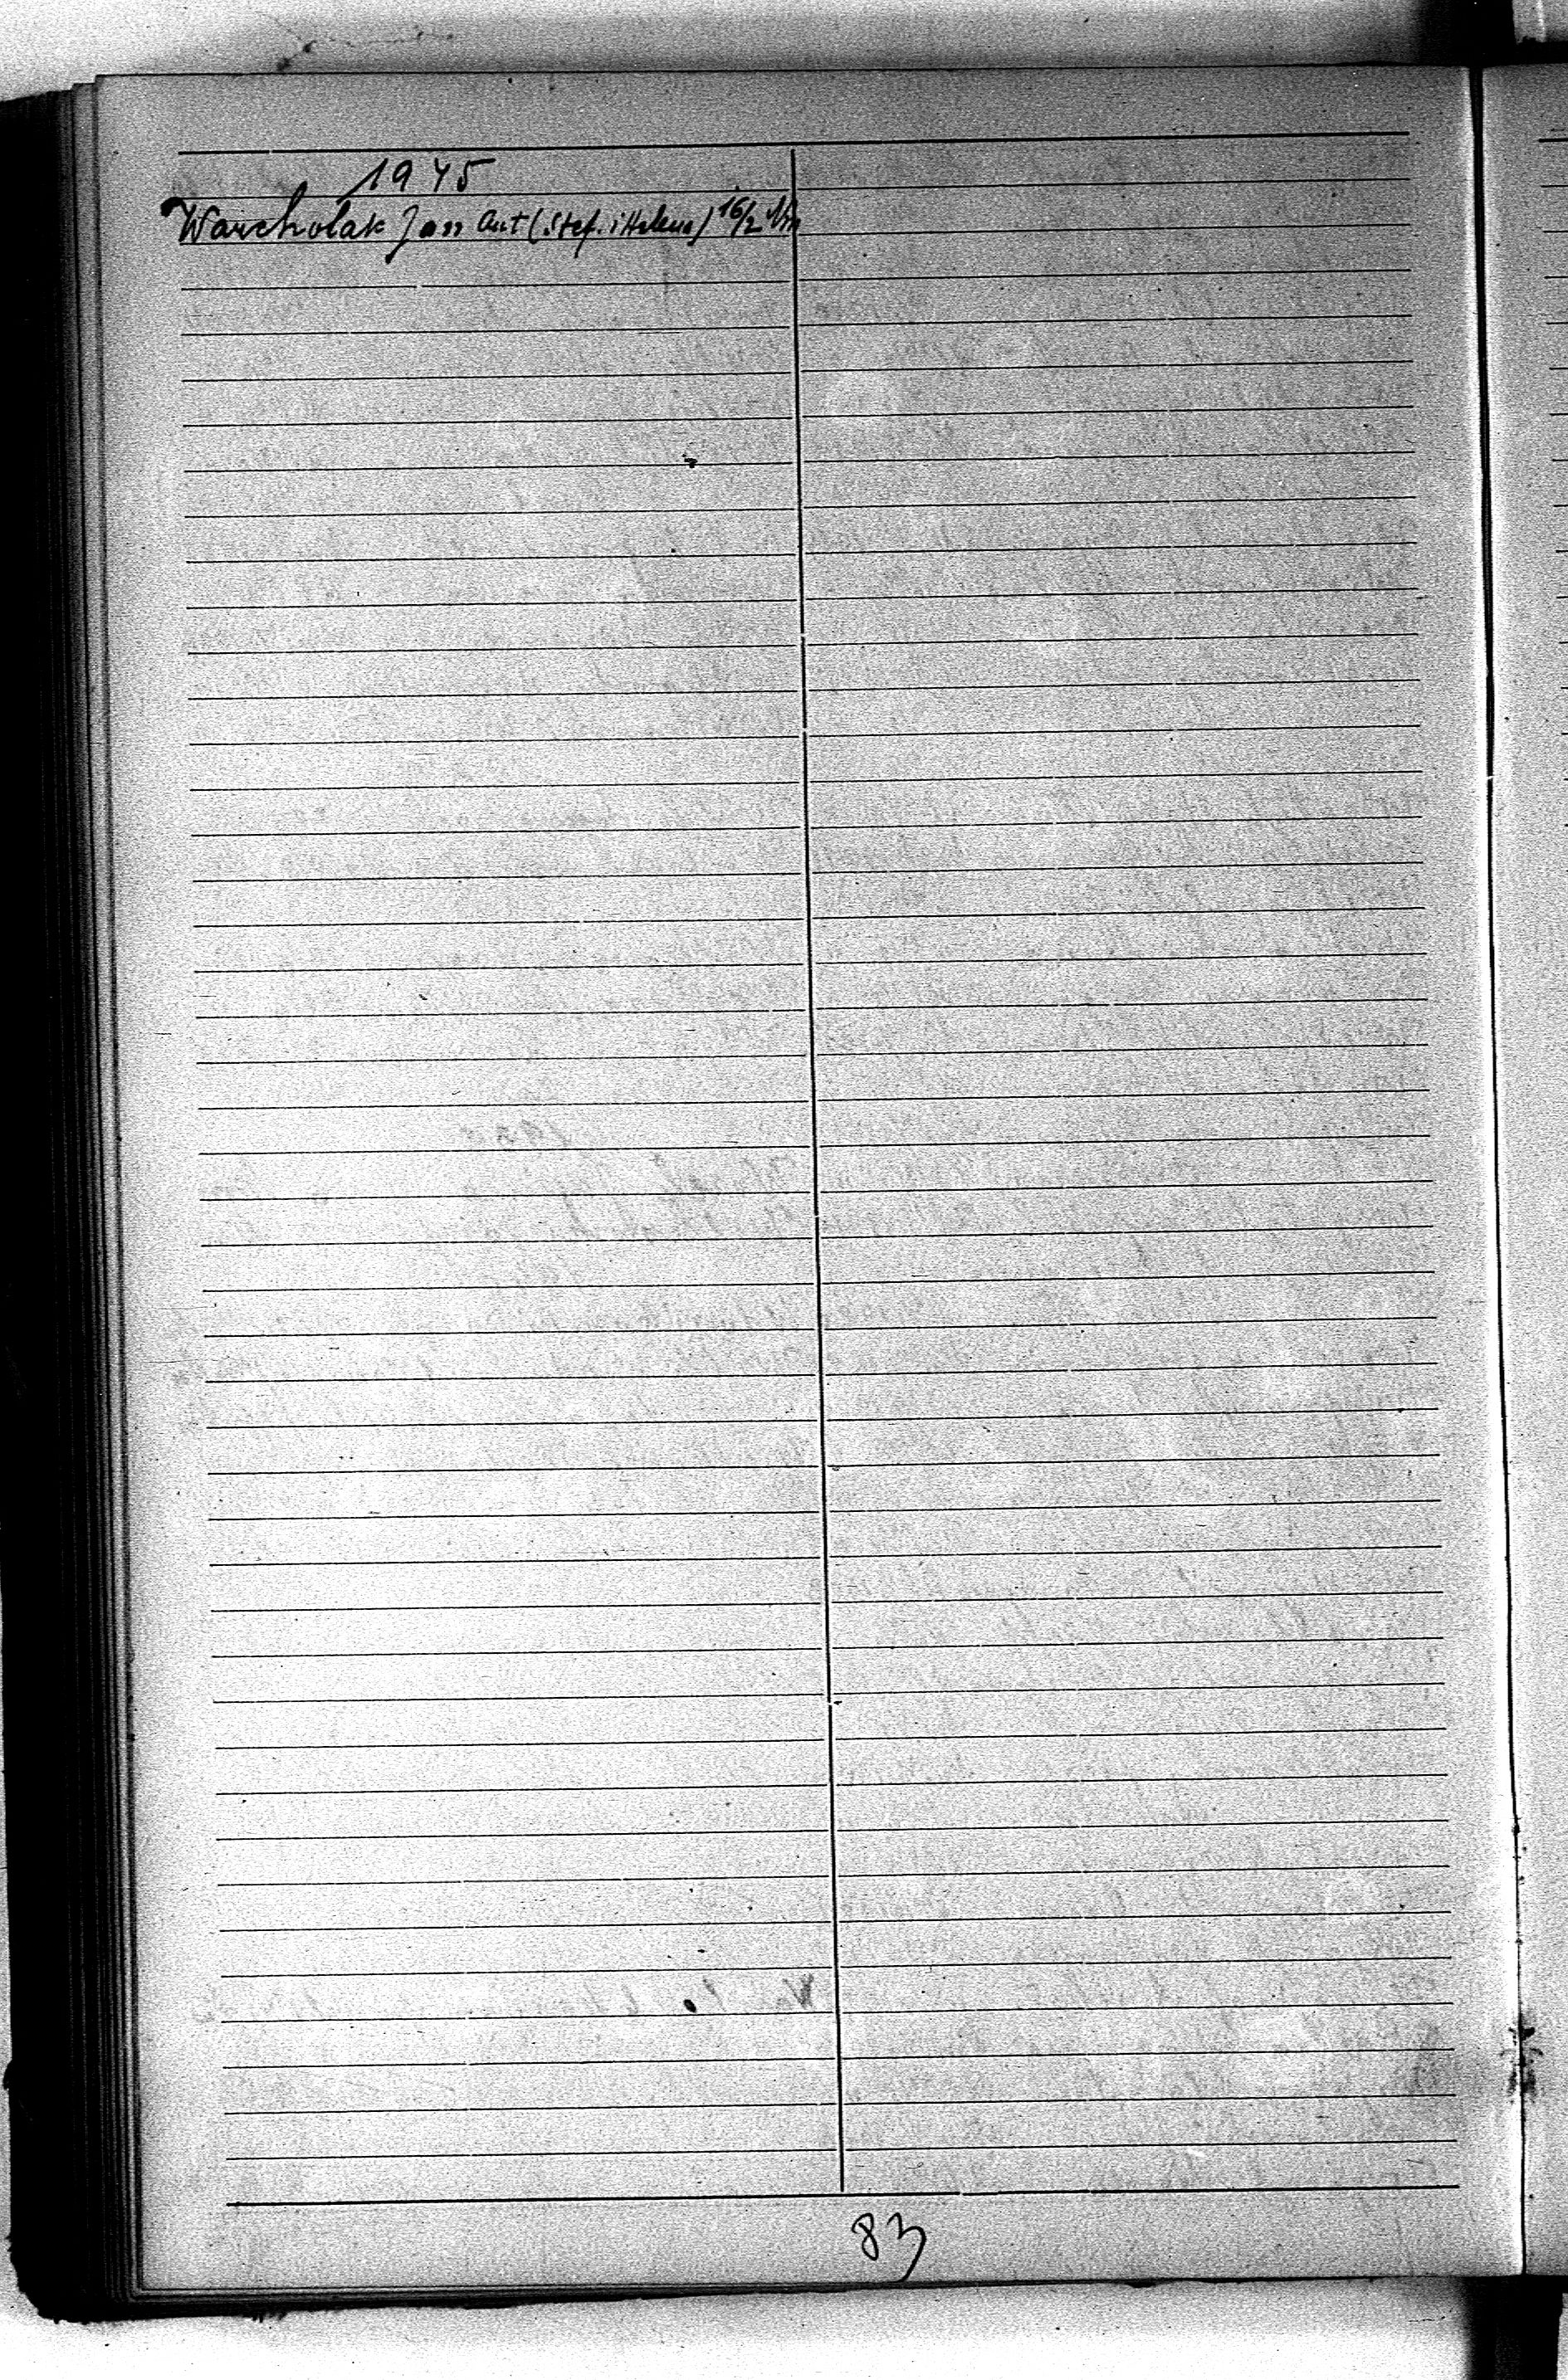 1945
Warchołak Jan Ant (Stef. i Helena) 16/2
83